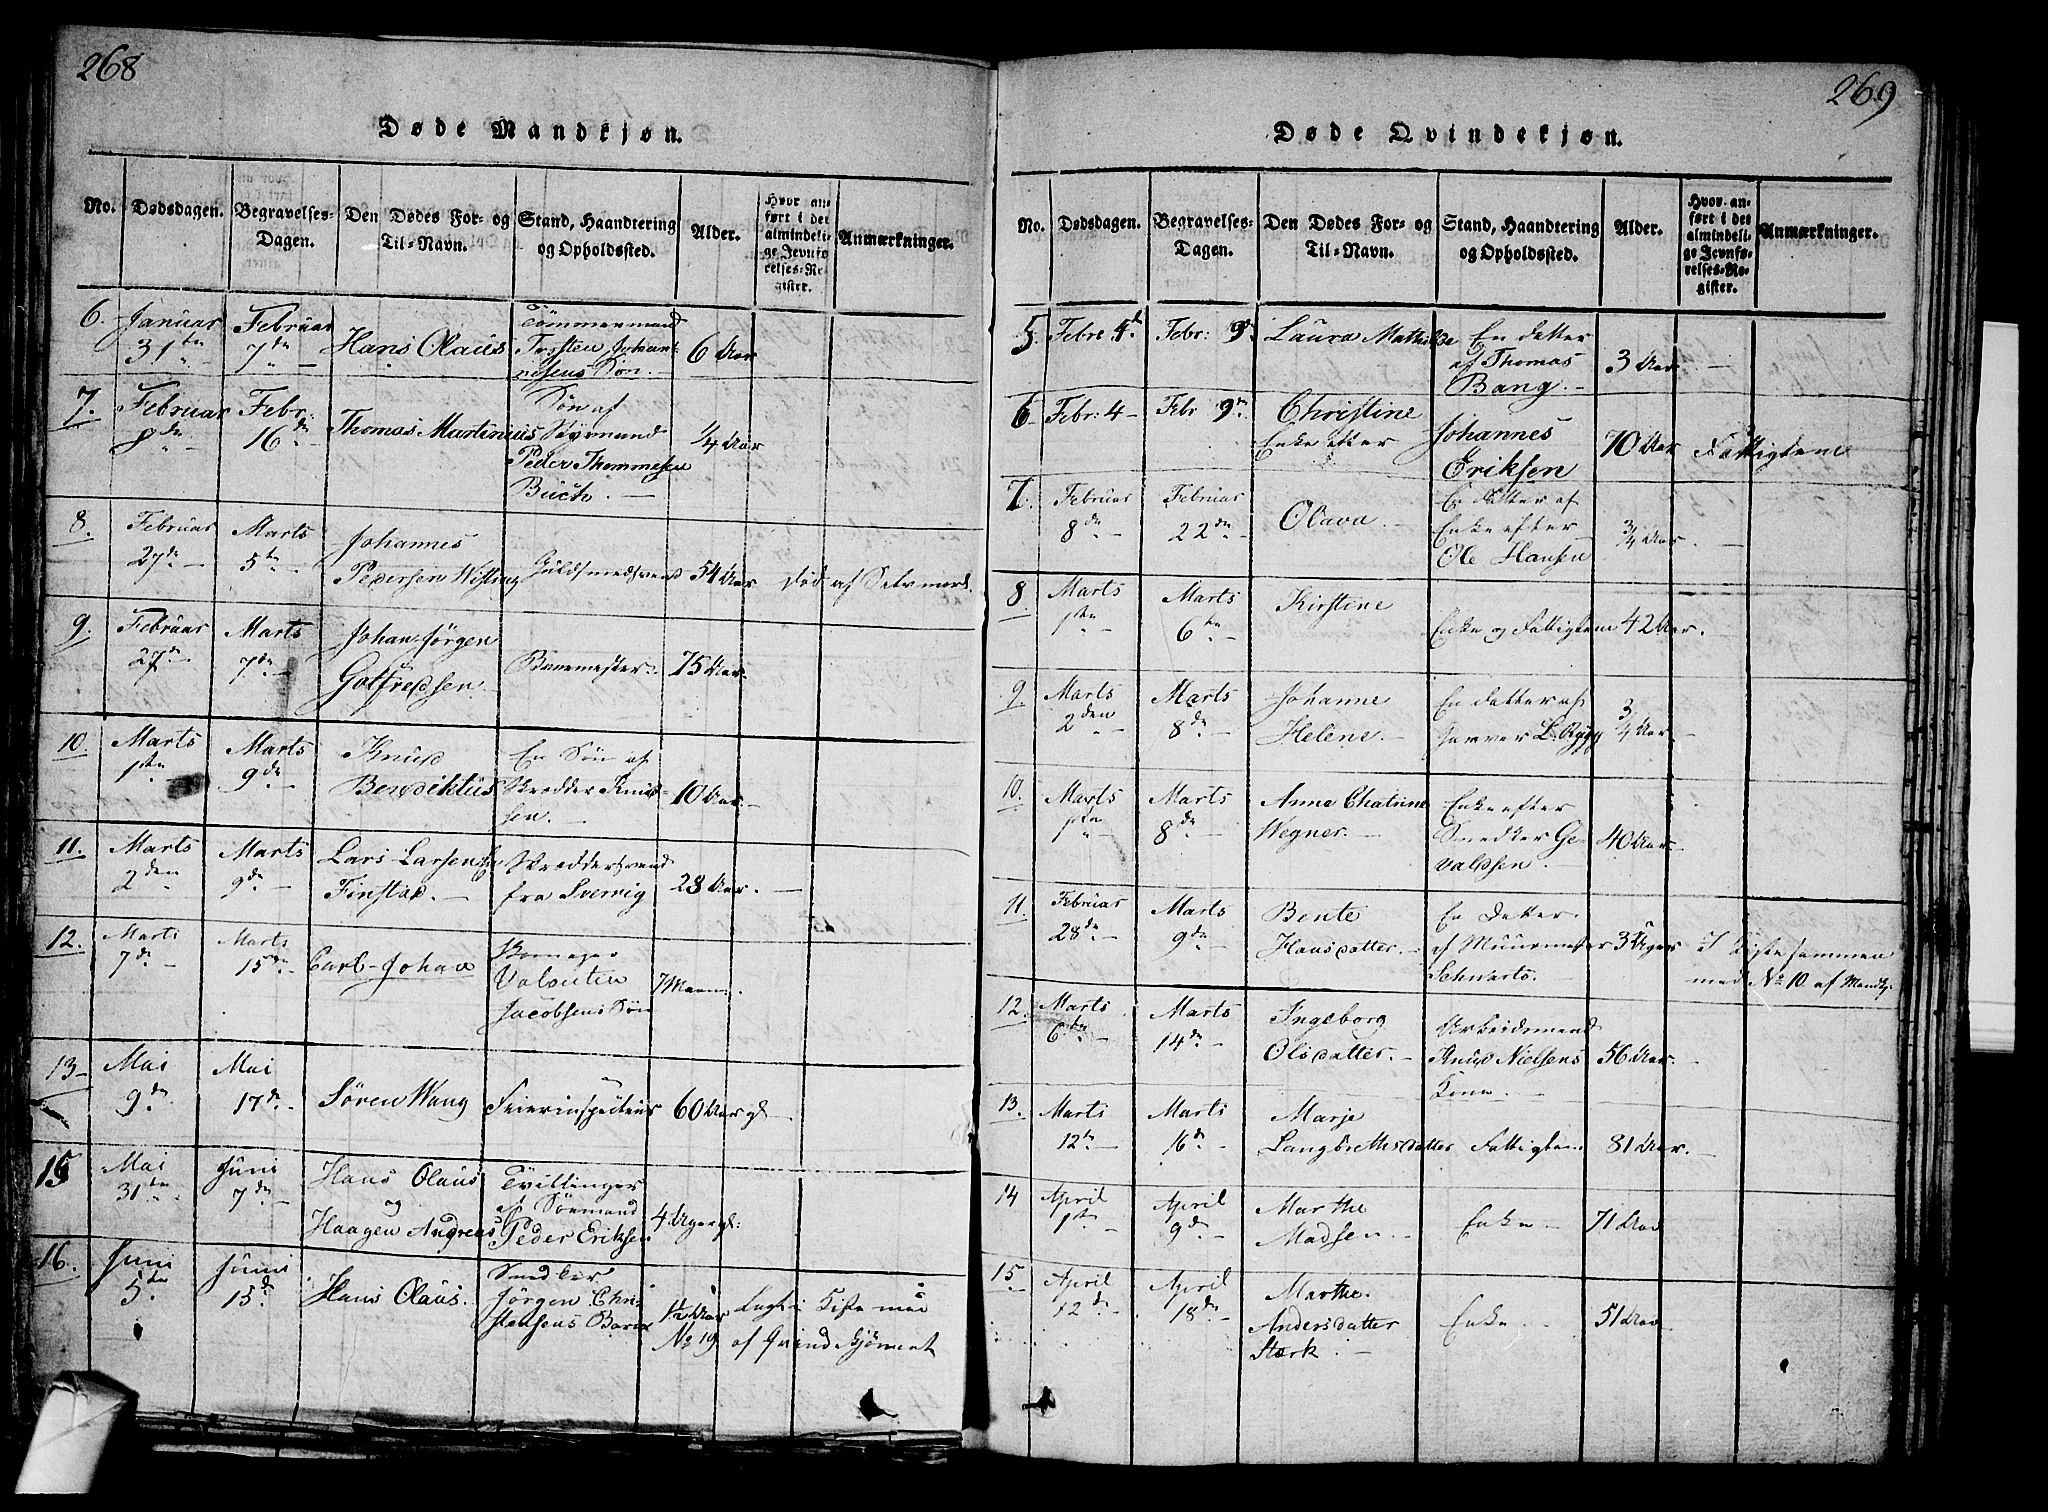 268
Døde Mandkjøn.
No. Dødsdagen. Begravelses-Dagen. Den Dødes For- og Til-Navn. Stand, Haandtering og Opholdssted. Alder. Hvor anført i det almindelige Jevnførelses-Register. Anmærkninger.
6. Januar 31te Februar 7de Hans Olaus Tømmermand Torsten Johannesens Søn. 6 Aar
7. Februar 8de Febr: 16de Thomas Martinius Søn af Styrmand Peder Thommesen Buch. 1/4 Aar
8. Februar 27de Marts 5te Johannes Pedersen Guldsmedsvend 54 Aar død af Selvmord.
9. Februar 27de Marts 7de Johan Jørgen Gotfredsen 75 Aar.
10. Marts 1ste Marts 9de Knud Bendiktus En Søn af Skrædder Knudsen. 10 Aar.
11. Marts 2den Marts 9de Lars Larsen Finstad. Skræddersvend fra Sverrig 28 Aar.
12. Marts 7de Marts 15de Carl Johan Valentin Jacobsens Søn 7 Maan:
13. Mai 9de Mai 17de Søren Wang 60 Aar gl.
15 Mai 31te Juni 7de Hans Olaus og Haagen Andreas Tvillinger af Peder Eriksen 4 Uger gl:
16. Juni 5te Juni 15de Hans Olaus. Snedker Jørgen Christensens Barn 1½ Aar Lagt i Kiste med No 19 af Qvindekjønnet
269
Døde Qvindekjøn.
No. Dødsdagen. Begravelses-Dagen. Den Dødes For- og Til-Navn. Stand, Haandtering og Opholdssted. Alder. Hvor anført i det almindelige Jevnførelses-Register. Anmærkninger.
5. Febr: 4de Febr: 9de Laura Mathilde En datter af Thomas Bang. 3 Aar
6. Febr: 4 Febr 9de Christine Enke efter Johannes Eriksen 70 Aar Fattiglem
7. Februar 8de Februar 22de Olava. En datter af Enke efter Ole Hansen 3/4 Aar
8 Marts 1ste Marts 6te Kirstine Enke og Fattiglem 42 Aar.
9 Marts 2den Marts 8de Johanne Helene. En datter af 3/4 Aar.
10. Marts 1ste Marts 8de Anna Chatrine Wegner. Enke efter Snedker Gevaldsen. 40 Aar
11. Februar 28de Marts 9de Bente Hansdatter. En datter af Muurmester Schwarts. 3 Uger I Kiste sammen med No 10. af Mandkj.
12. Marts 6te Marts 14de Ingeborg Olsdatter. Arbeidsmand Knud Nielsens Kone 56 Aar
13. Marts 12te Marts 16de Marje Langbrethsdatter Fattiglem 81 Aar.
14 April 1ste April 9de Marthe Madsen. Enke 71 Aar
15. April 12de April 18de Marthe Andersdatter Stærk. Enke. 51 Aar